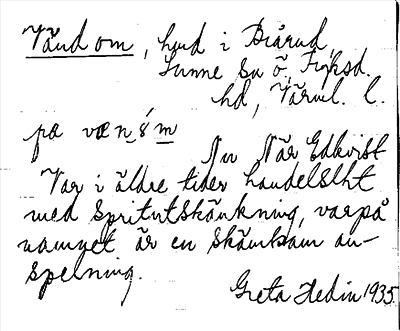 Vänd om, hvd i Biårud,
Sunne sn ö. Fryksd.
hd, Värml. l.
pa væn,s´m
Nu När Edkvist
Var i äldre tider handelslht
med Spritutskänkning, varpå
namnet är en skämtsam an-
spelning.
Greta Hedin 1935